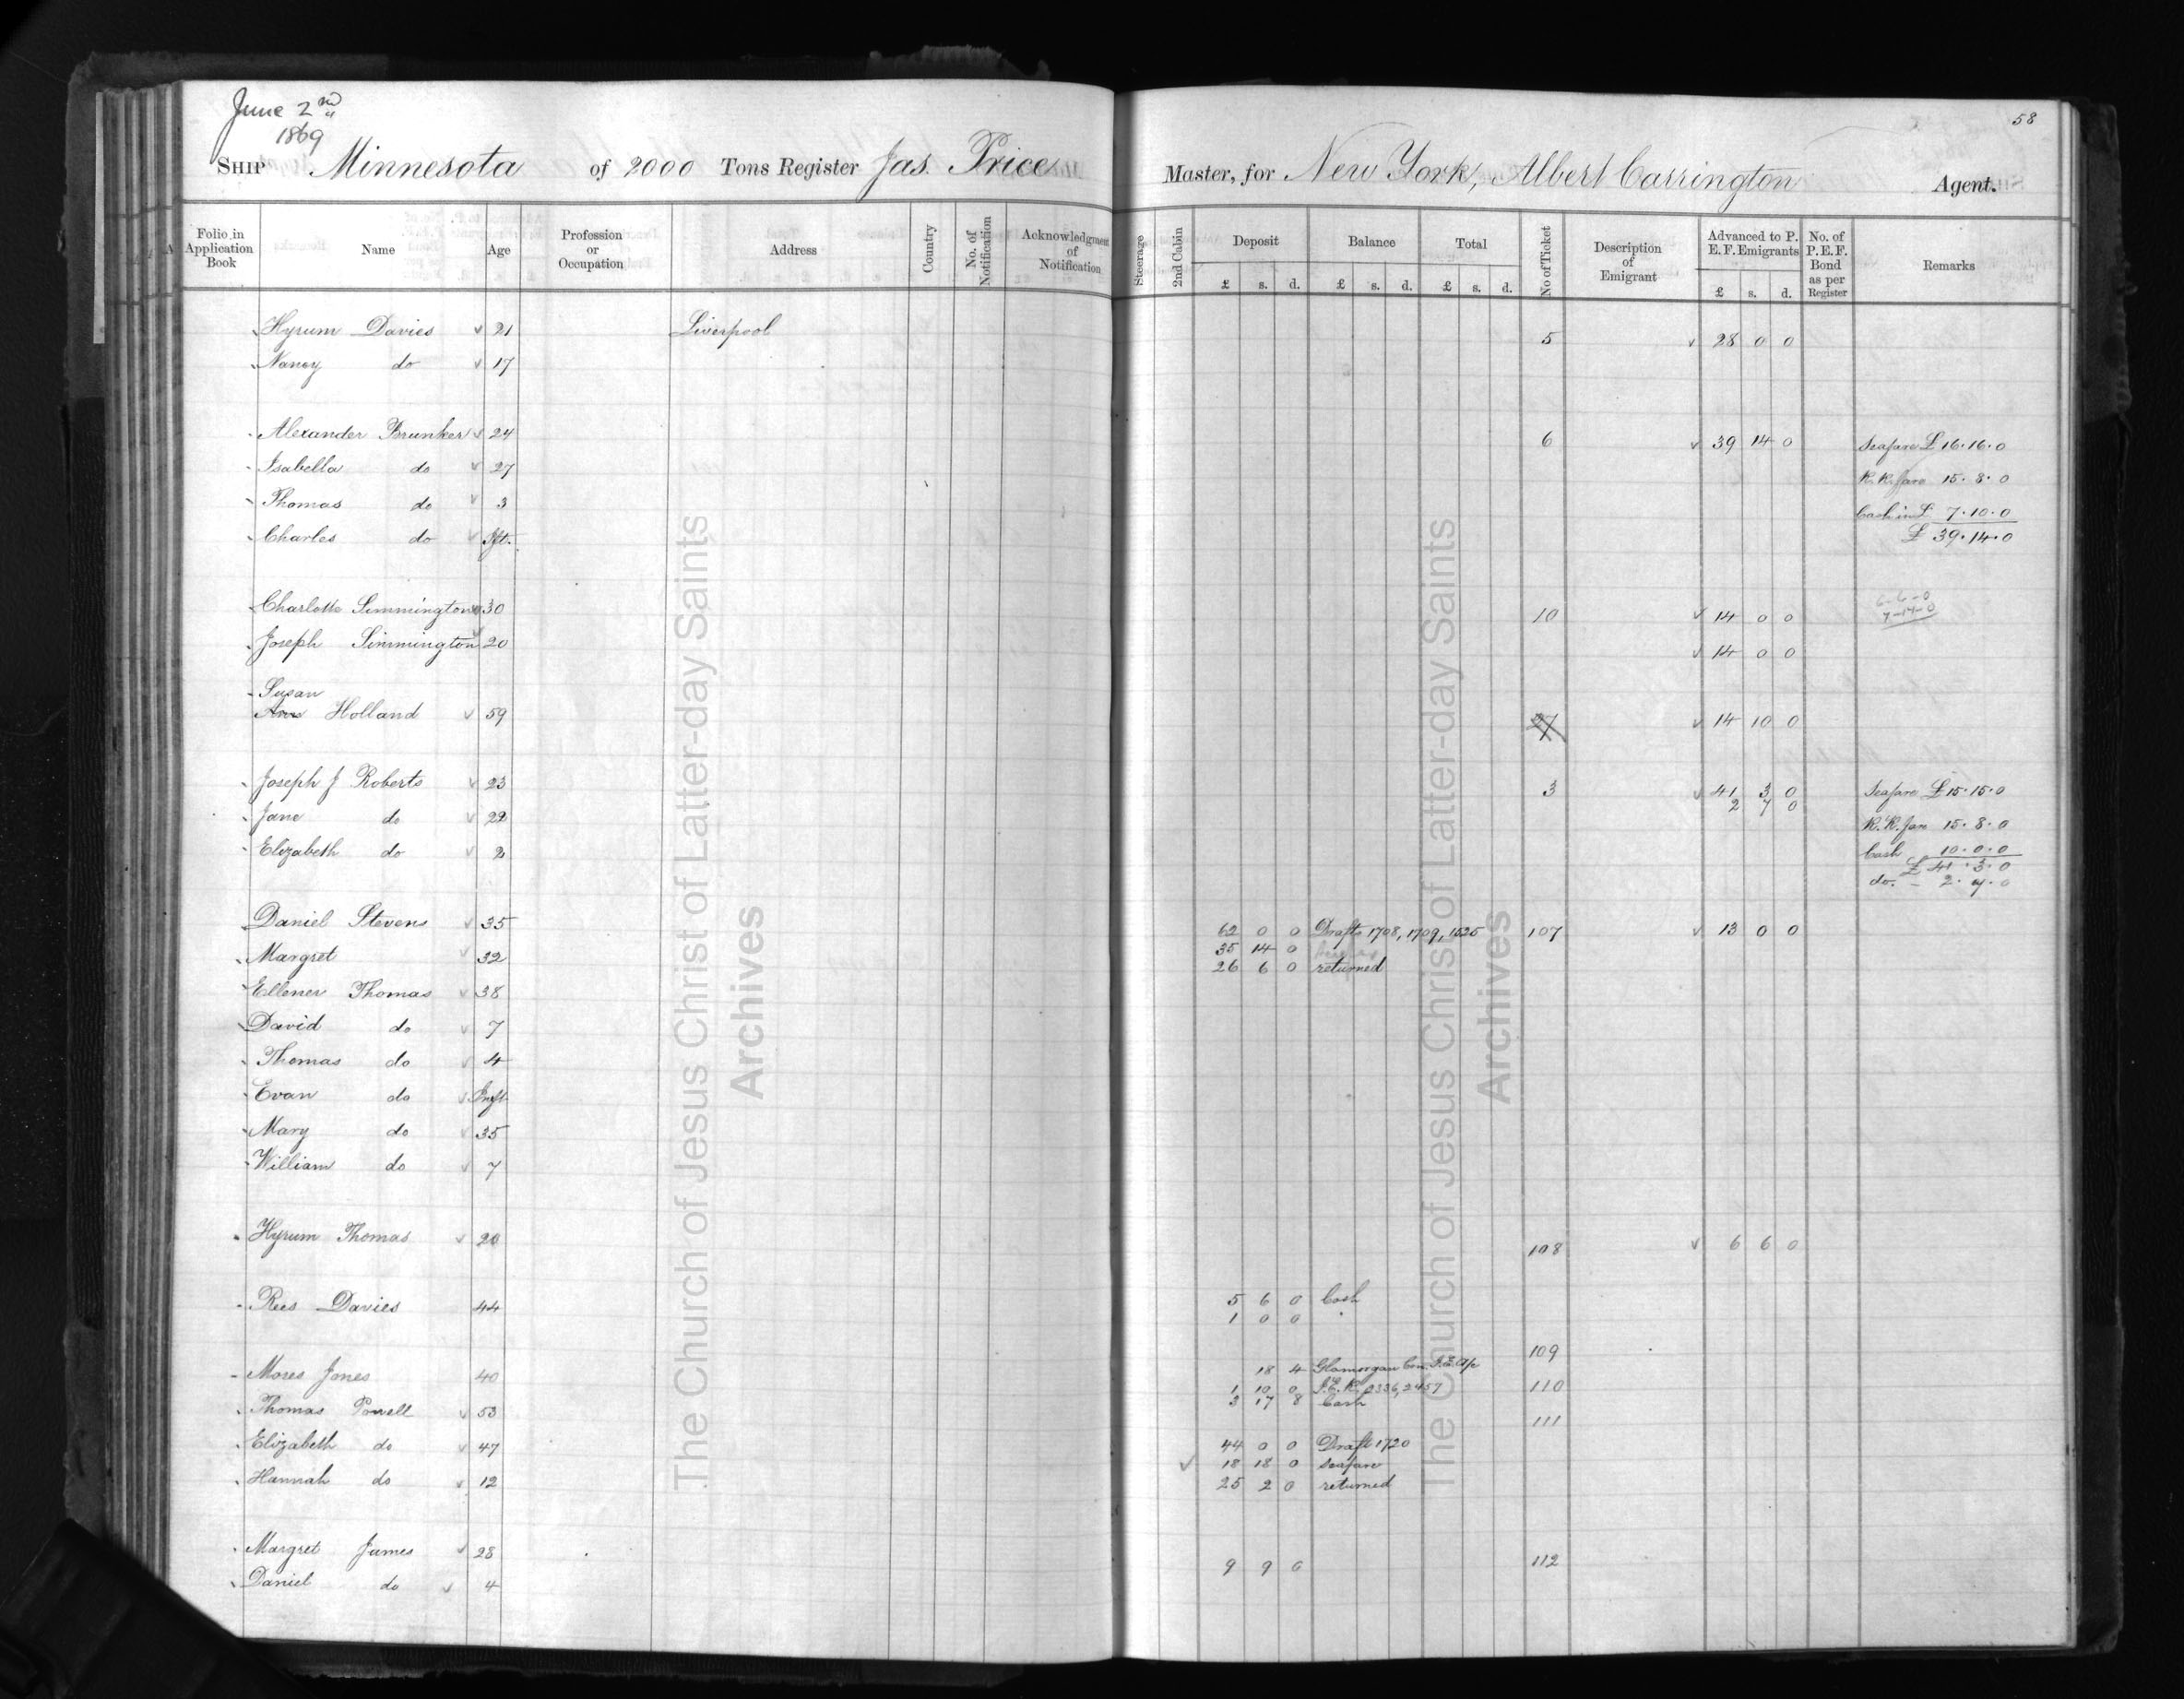 June 2nd
1869
58
SHIP Minnesota of 2000 Tons Register Jas. Price Master, for New York, Albert Carrington Agent.
Folio in Application Book
Name
Age
Profession or Occupation
Address
Country
No. of Notification
Acknowledgment of Notification
Steerage
2nd Cabin
Deposit £ s. d.
Balance £ s. d.
Total £ s. d.
No of Ticket
Description of Emigrant
Advanced to P. E. F. Emigrants £ s. d.
No. of P.E.F. Bond as per Register
Remarks
Hyrum Davies 21 Liverpool 5 28 0 0
Nancy do 17
Alexander Brunker 24 6 39 14 0 Seafare £16.16.0
Isabella do 27 R.R. fare 15.8.0
Thomas do 3 Cash in £ 7.10.0
Charles do Ift. £ 39.14.0
6-6-0
7-14-0
Charlotte Simmington 30 10 14 0 0
Joseph Simmington 20 14 0 0
Susan
Ann Holland 59 27 14 10 0
Joseph J Roberts 23 3 41 3 0 Seafare £15.15.0
2 7 0
Jane do 22 R.R. fare 15.8.0
Elizabeth do 2 Cash 10.0.0
£ 41.3.0
do. - 2.7.0
Daniel Stevens 35 62 0 0 Drafts 1708, 1709, 1525 107 13 0 0
35 14 0
Margret 32 26 6 0 returned
Ellener Thomas 38
David do 7
Thomas do 4
Evan do Inft
Mary do 35
William do 7
Hyrum Thomas 20 108 6 6 0
Rees Davies 44 5 6 0 Cash
1 0 0 "
109
Moses Jones 40 18 4 Glamorgan Con. I.E. a/c
1 10 0 I.E. R. 2336, 2457 110
Thomas Powell 53 3 17 8 Cash
111
Elizabeth do 47 44 0 0 Draft 1720
18 18 0 seafare
Hannah do 12 25 2 0 returned
Margret James 28 9 9 0 112
Daniel do 4
The Church of Jesus Christ of Latter-day Saints
Archives
The Church of Jesus Christ of Latter-day Saints
Archives